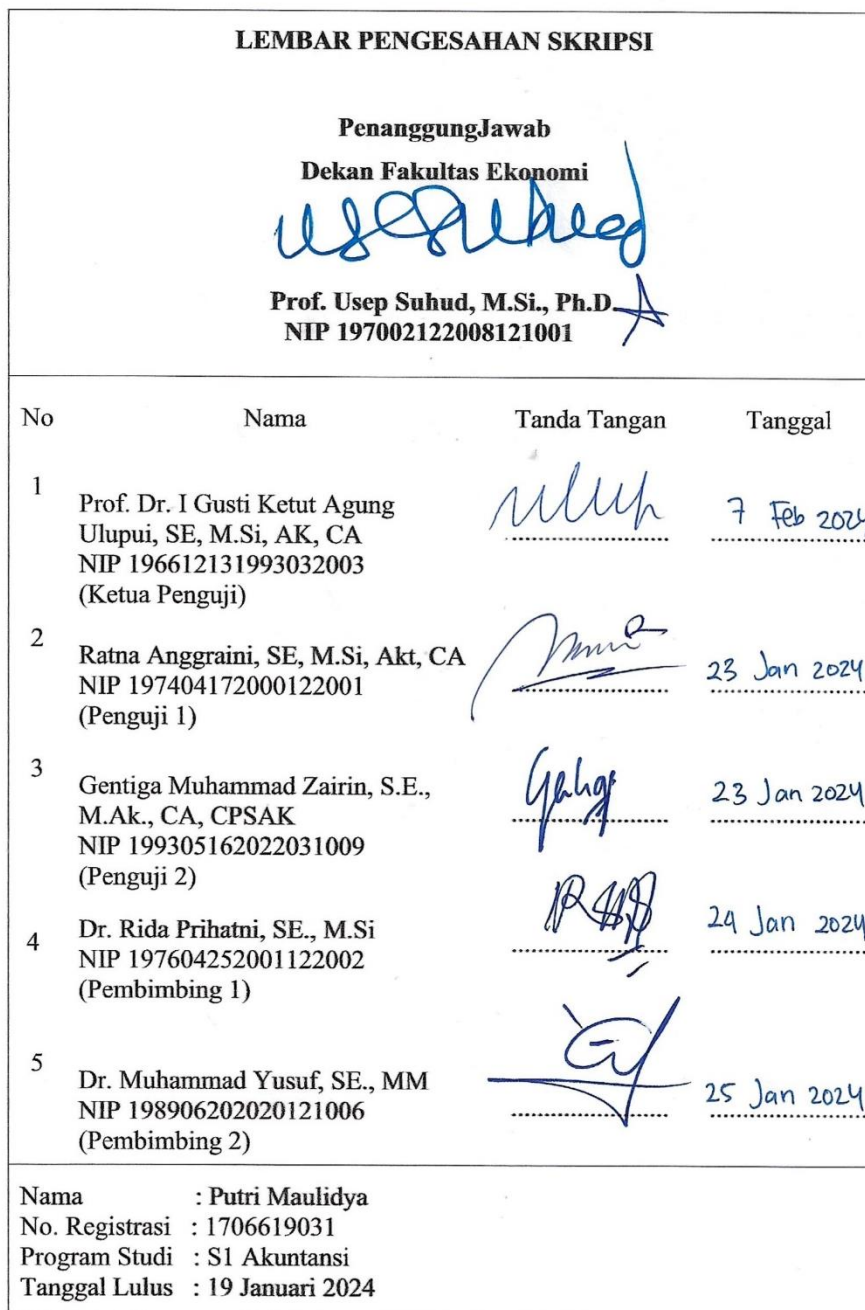 LEMBAR PENGESAHAN SKRIPSI
PenanggungJawab
Dekan Fakultas Ekonomi
Prof. Usep Suhud, M.Si., Ph.D
NIP 197002122008121001
No Nama Tanda Tangan Tanggal
1 Prof. Dr. I Gusti Ketut Agung
Ulupui, SE, M.Si, AK, CA
NIP 196612131993032003
(Ketua Penguji)
7 Feb 2024
2 Ratna Anggraini, SE, M.Si, Akt, CA
NIP 197404172000122001
(Penguji 1)
23 Jan 2024
3 Gentiga Muhammad Zairin, S.E.,
M.Ak., CA, CPSAK
NIP 199305162022031009
(Penguji 2)
23 Jan 2024
4 Dr. Rida Prihatni, SE., M.Si
NIP 197604252001122002
(Pembimbing 1)
24 Jan 2024
5 Dr. Muhammad Yusuf, SE., MM
NIP 198906202020121006
(Pembimbing 2)
25 Jan 2024
Nama : Putri Maulidya
No. Registrasi : 1706619031
Program Studi : S1 Akuntansi
Tanggal Lulus : 19 Januari 2024